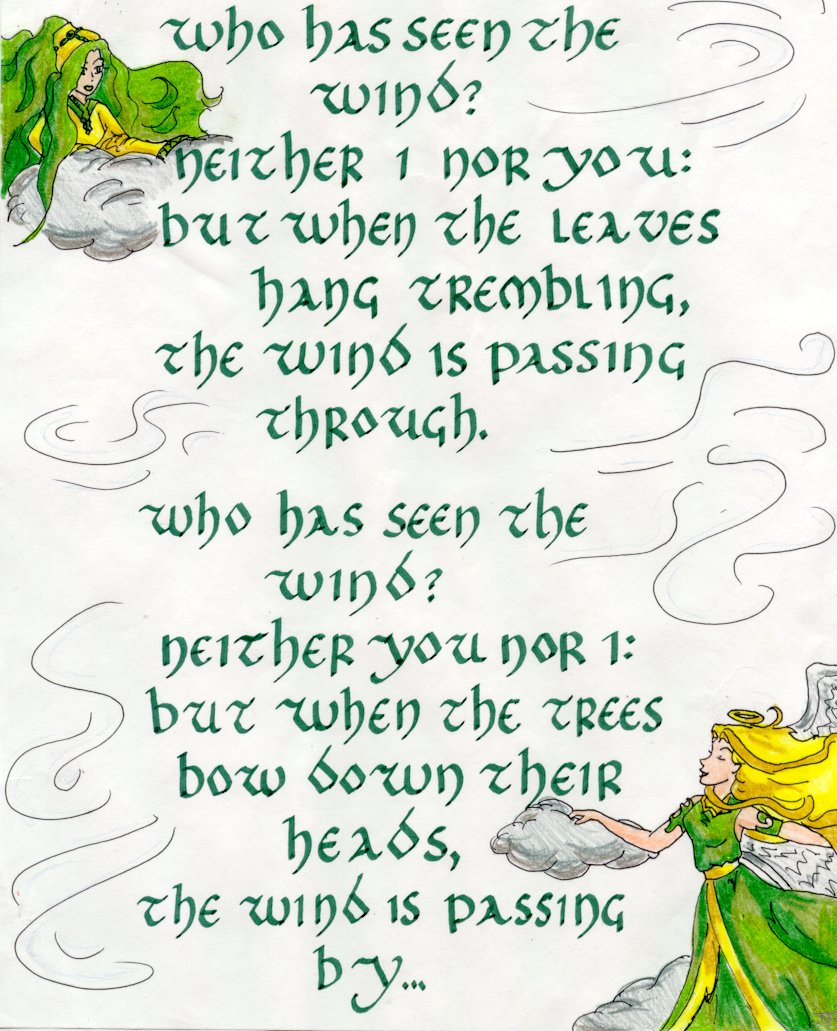 Who has seen the
wind?
Neither I nor you:
but when the leaves
hang trembling,
the wind is passing
through.
Who has seen the
wind?
Neither you nor I:
but when the trees
bow down their
heads,
the wind is passing
by...